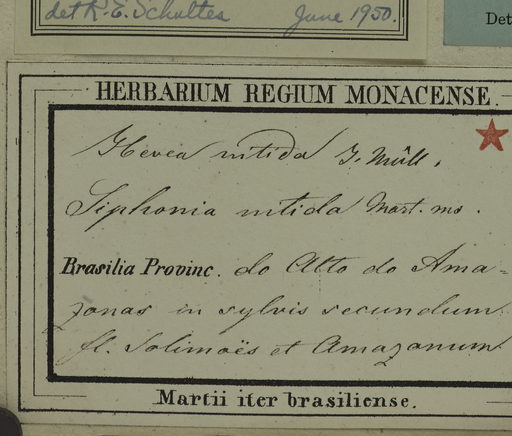 det R. E. Schultes June 1950.
Det
HERBARIUM REGIUM MONACENSE.
Hevea nitida J. Müll.
Siphonia nitida Mart. ms.
Brasilia Provinc. do Alto do Ama-
zonas in sylvis secundum
fl. Solimoës et Amazonum
Martii iter brasiliense.